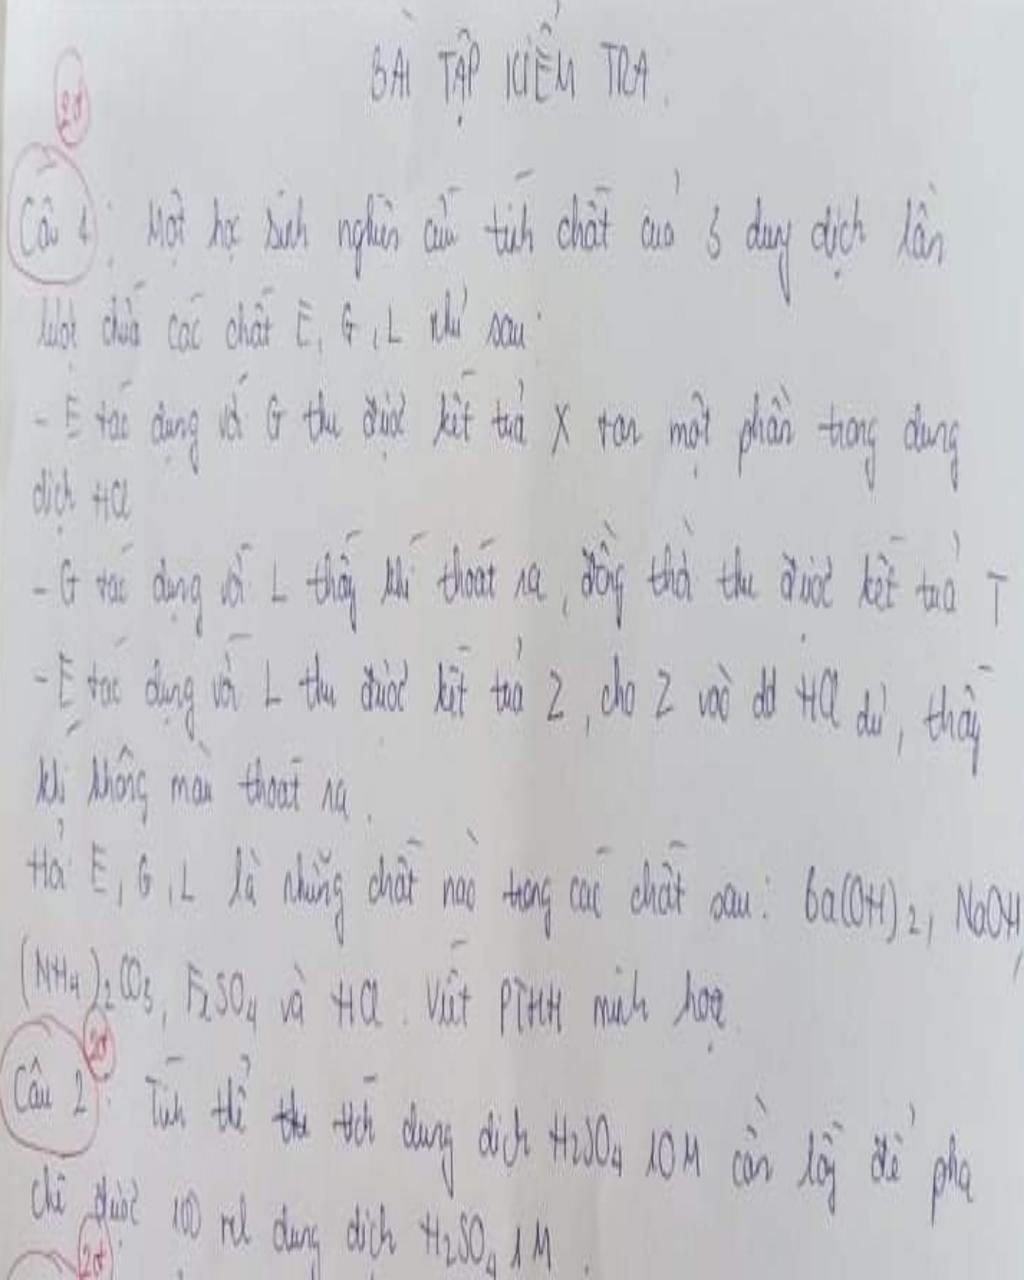 BÀI TẬP KIỂM TRA.
2đ
Câu 1: Một học sinh nghiên cứu tính chất của 3 dung dịch lần
lượt chứa các chất E, G, L như sau:
- E tác dụng với G thu được kết tủa X tan một phần trong dung
dịch HCl
- G tác dụng với L thấy khí thoát ra, đồng thời thu được kết tủa T
- E tác dụng với L thu được kết tủa Z, cho Z vào dd HCl dư, thấy
khí không màu thoát ra.
Hỏi E, G, L là những chất nào trong các chất sau: Ba(OH)2, NaOH,
(NH4)2CO3, FeSO4 và HCl. Viết PTHH minh họa.
2đ
Câu 2: Tính thể thu tích dung dịch H2SO4 10M cần lấy để pha
chế được 100 ml dung dịch H2SO4 1M.
2đ